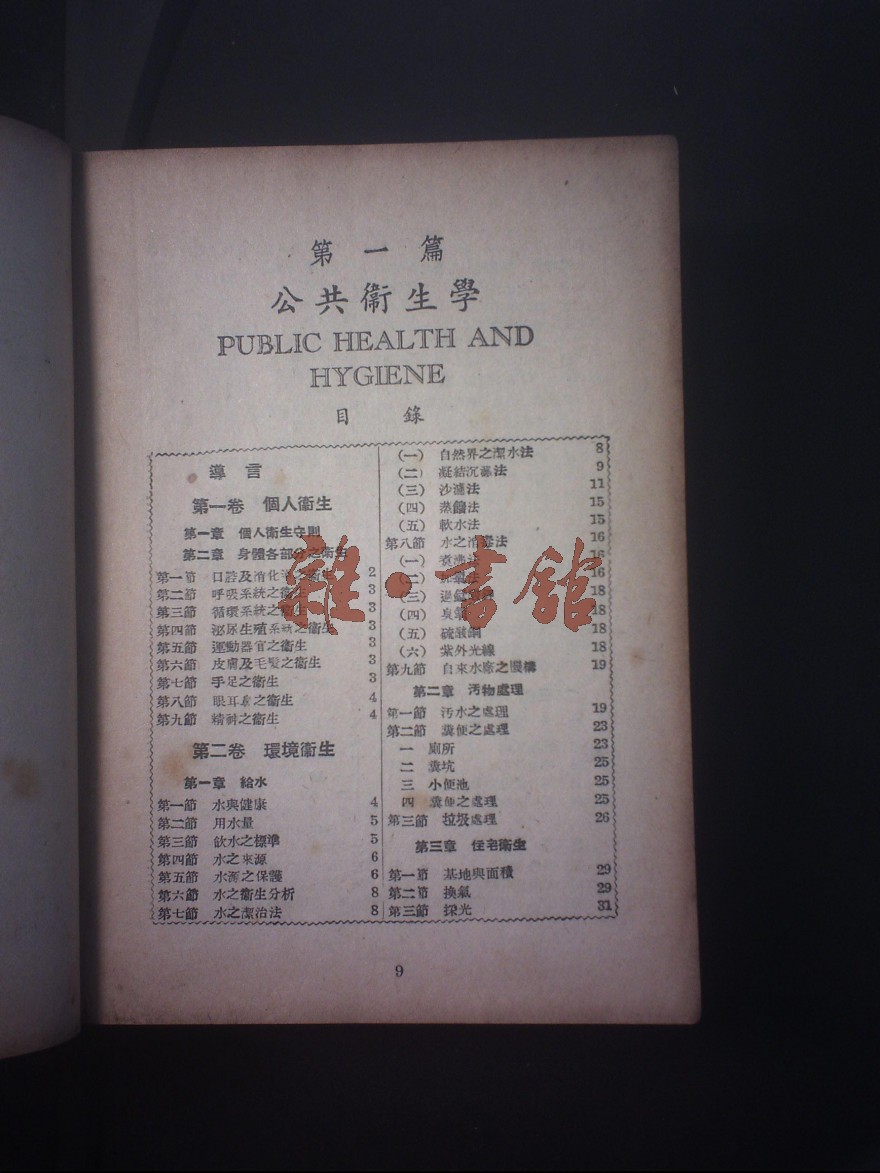 第一篇
公共衞生學
PUBLIC HEALTH AND
HYGIENE
目錄
導言
第一卷 個人衞生
第一章 個人衞生守則
第二章 身體各部分之衞生
第一節 口腔及消化 之衞生 2
第二節 呼吸系統之衞生 3
第三節 循環系統之衞生 3
第四節 泌尿生殖系統之衞生 3
第五節 運動器官之衞生 3
第六節 皮膚及毛髮之衞生 3
第七節 手足之衞生 3
第八節 眼耳鼻之衞生 4
第九節 精神之衞生 4
第二卷 環境衞生
第一章 給水
第一節 水與健康 4
第二節 用水量 5
第三節 飲水之標準 5
第四節 水之來源 6
第五節 水源之保護 6
第六節 水之衞生分析 8
第七節 水之潔治法 8
(一) 自然界之潔水法 8
(二) 凝結沉澱法 9
(三) 沙濾法 11
(四) 蒸餾法 15
(五) 軟水法 15
第八節 水之消毒法 16
(一) 煮沸法 16
(二) 氯法 16
(三) 18
(四) 臭氧 18
(五) 硫酸銅 18
(六) 紫外光線 18
第九節 自來水廠之 構 19
第二章 汚物處理
第一節 汚水之處理 19
第二節 糞便之處理 23
一 廁所 23
二 糞坑 25
三 小便池 25
四 糞便之處理 25
第三節 垃圾處理 26
第三章 住宅衞生
第一節 基地與面積 29
第二節 換氣 29
第三節 採光 31
9
雜·書館